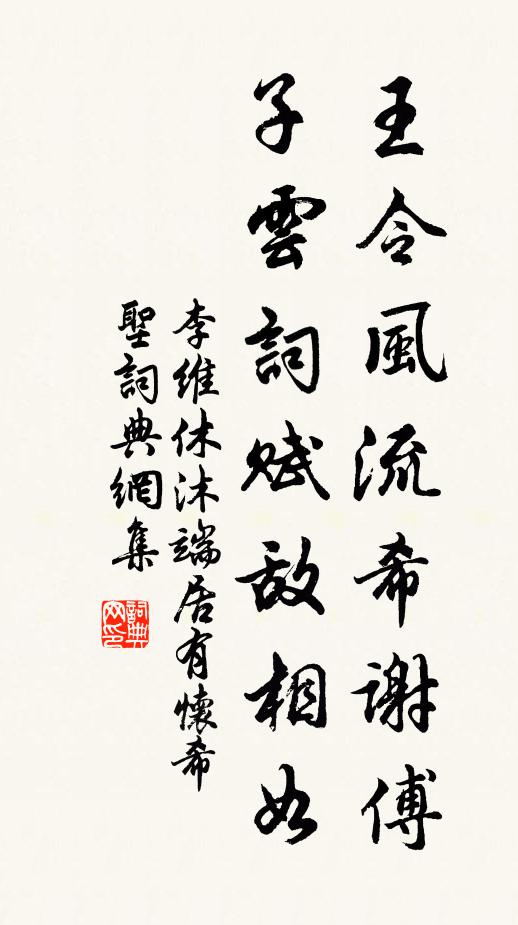 王令風流希謝傅
子雲詞賦敵相如
李維休沐端居有懷希
聖詞典網集
詞典網印